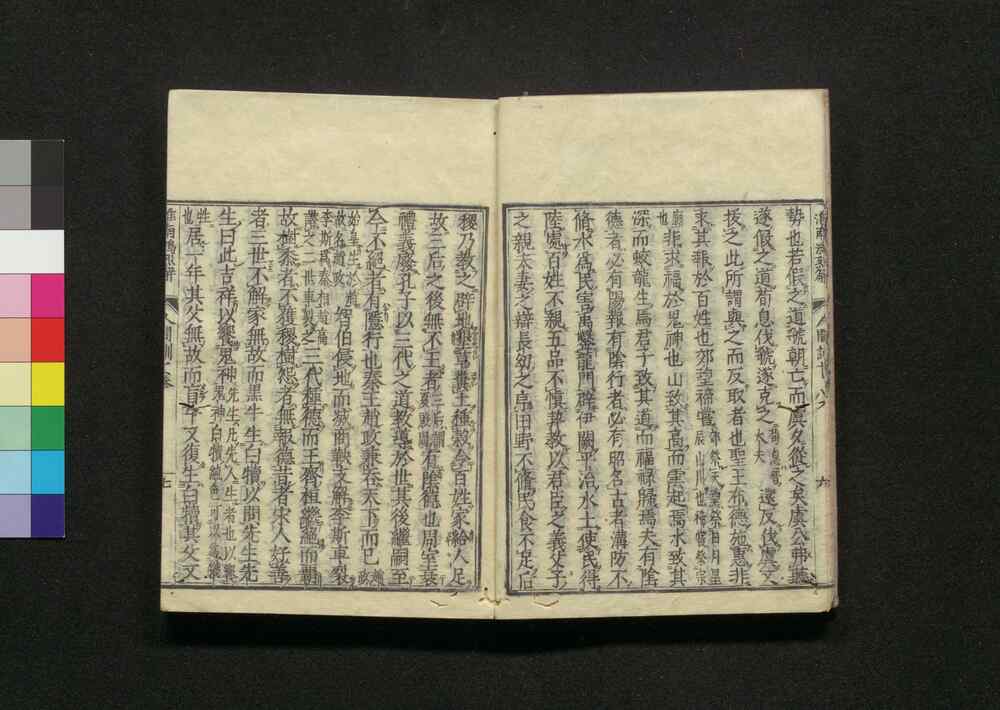 勢也若假之道虢朝亡而虞夕從之矣虞公弗聽
遂假之道荀息伐虢遂克之荀息晉大夫還反伐虞又
抜之此所謂與之而反取者也聖王布德施惠非
求其報於百姓也郊望禘嘗郊祭天望祭日月星辰山川也禘嘗祭宗
廟也非求福於鬼神也山致其高而雲起焉水致其
深而蛟龍生焉君子致其道而福禄歸焉夫有陰
德者必有陽報有陰行者必有昭名古者溝防不
脩水爲民害禹鑿龍門辟伊闕平治水土使民得
陸處百姓不親五品不慎契教以君臣之義父子
之親夫妻之辯長幼之序田野不脩民食不足后
稷乃教之辟地墾草糞土種穀令百姓家給人足
故三后之後無不王者三后謂夏殷周有陰德也周室衰
禮義廢孔子以三代之道教導於世其後繼嗣至
今不絕者有隱行也秦王趙政兼吞天下而已趙政
始皇生於趙故名趙政智伯侵地而滅商鞅支解李斯車裂
李斯爲秦相趙高譖之二世車裂之三代種德而王齊桓繼絕而霸
故樹黍者不獲稷樹怨者無報德昔者宋人好善
者三世不解家無故而黒牛生白犢以問先生先
生曰此吉祥以饗鬼神先生凡先人生者也以饗鬼神白犢純色可以爲犧
牲也居一年其父無故而盲牛又復生白犢其父又
七